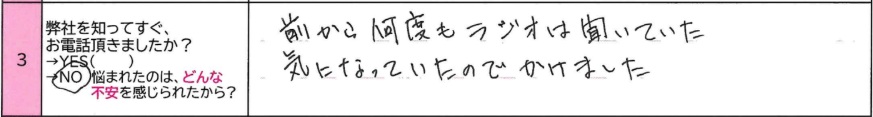 3
弊社を知ってすぐ、
お電話頂きましたか？
→YES(　　)
→NO 悩まれたのは、どんな
不安を感じられたから？
前から何度もラジオは聞いていた
気になっていたのでかけました